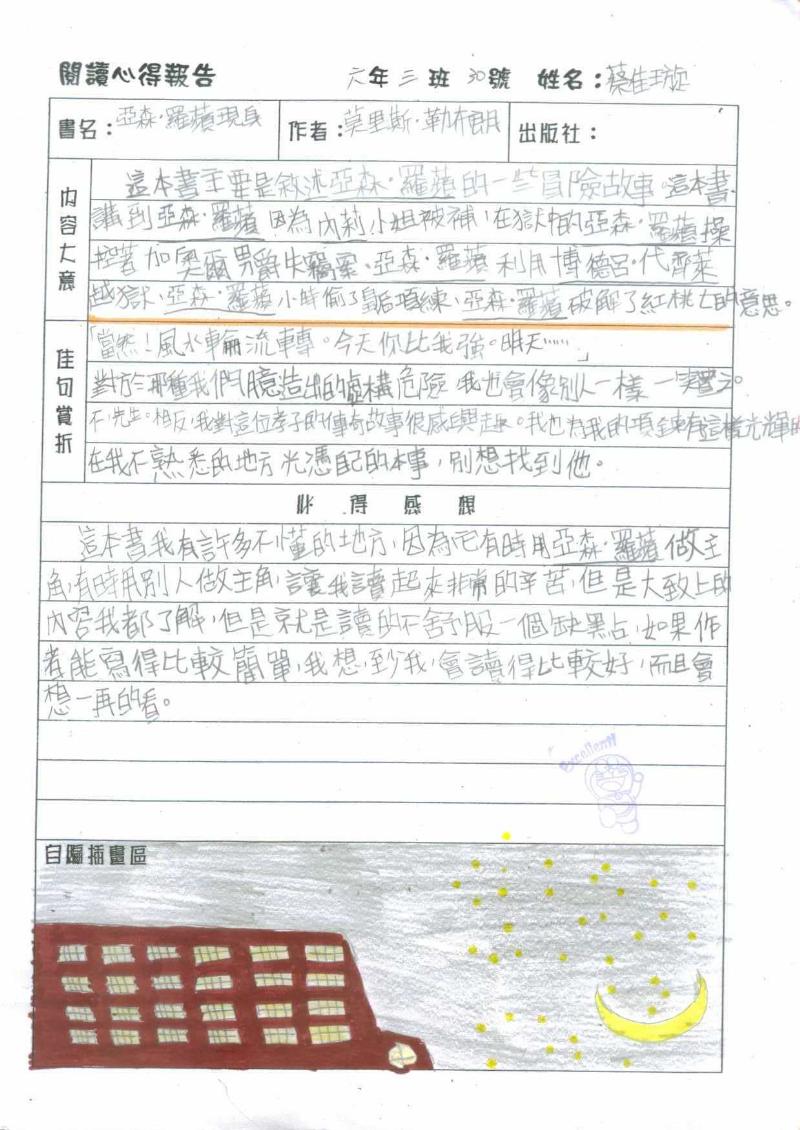 閱讀心得報告 六年三班30號 姓名：蔡佳璇
書名：亞森·羅蘋現身 作者：莫里斯·勒布朗 出版社：
內容大意
這本書主要是敘述亞森·羅蘋的一些冒險故事。這本書
講到亞森·羅蘋因為內莉小姐被補、在獄中的亞森·羅蘋操
控著加奧爾男爵失竊案、亞森·羅蘋利用博德呂·代齊萊
越獄、亞森·羅蘋小時偷了皇后項練、亞森·羅蘋破解了紅桃七的意思。
佳句賞析
「當然！風水輪流轉。今天你比我強。明天……」
對於那種我們臆造出的虛構危險，我也會像別人一樣一笑置之。
不，先生。相反，我對這位孝子的傳奇故事很感興趣。我也為我的項鍊有這樣光輝的
在我不熟悉的地方光憑自己的本事，別想找到他。
心得感想
這本書我有許多不懂的地方，因為它有時用亞森·羅蘋做主
角，有時用別人做主角，讓我讀起來非常的辛苦，但是大致上的
內容我都了解，但是就是讀的不舒服一個缺點，如果作
者能寫得比較簡單，我想，到我，會讀得比較好，而且會
想一再的看。
Excellent!
自編插畫區